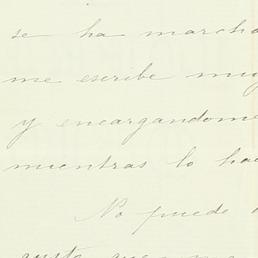 se ha marcha
me escribe muy
y encargandome
mientras lo hac
No puedo
gusto que